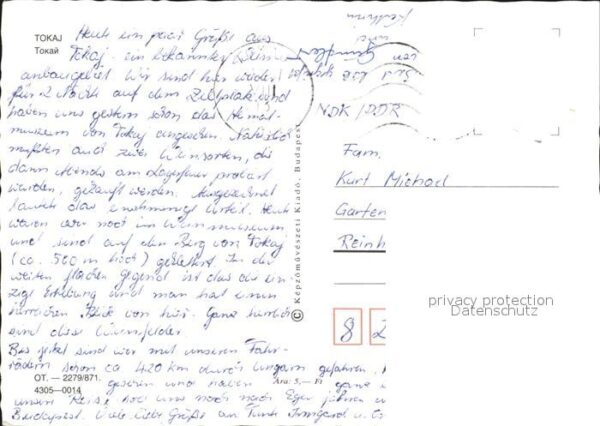 TOKAJ
Токай
Heute ein paar Grüße aus
Tokaj - ein bekanntes Wein-
anbaugebiet. Wir sind hier wieder
für 2 Nächte auf dem Zeltplatz und
haben uns gestern schon das Heimat-
museum von Tokaj angesehen. Natürlich
mußten auch zwei Weinsorten, die
dann abends am Lagerfeuer probiert
wurden, gekauft werden. Ausgezeichnet
lautete das einstimmige Urteil. Heute
waren wir noch im Weinmuseum
und sind auf den Berg von Tokaj
(ca. 500 m hoch) geklettert. In der
weiten flachen Gegend ist das die ein-
zige Erhebung und man hat einen
herrlichen Blick von hier. Ganz herrlich
sind die Weinfelder.
Bis jetzt sind wir mit unseren Fahr-
rädern schon ca 420 km durch Ungarn gefahren,
gesehen und haben ganz
unsere Reise, noch nach Eger fahren
Budapest. Viele liebe Grüße an Tante Irmgard u.
OT. — 2279/871.
4305—0014
Ára: 5,— Ft
© Képzőművészeti Kiadó, Budapest
Kathrin
und
NDK / DDR
Fam.
Kurt Michael
Garten
Reinh
8 2
privacy protection
Datenschutz